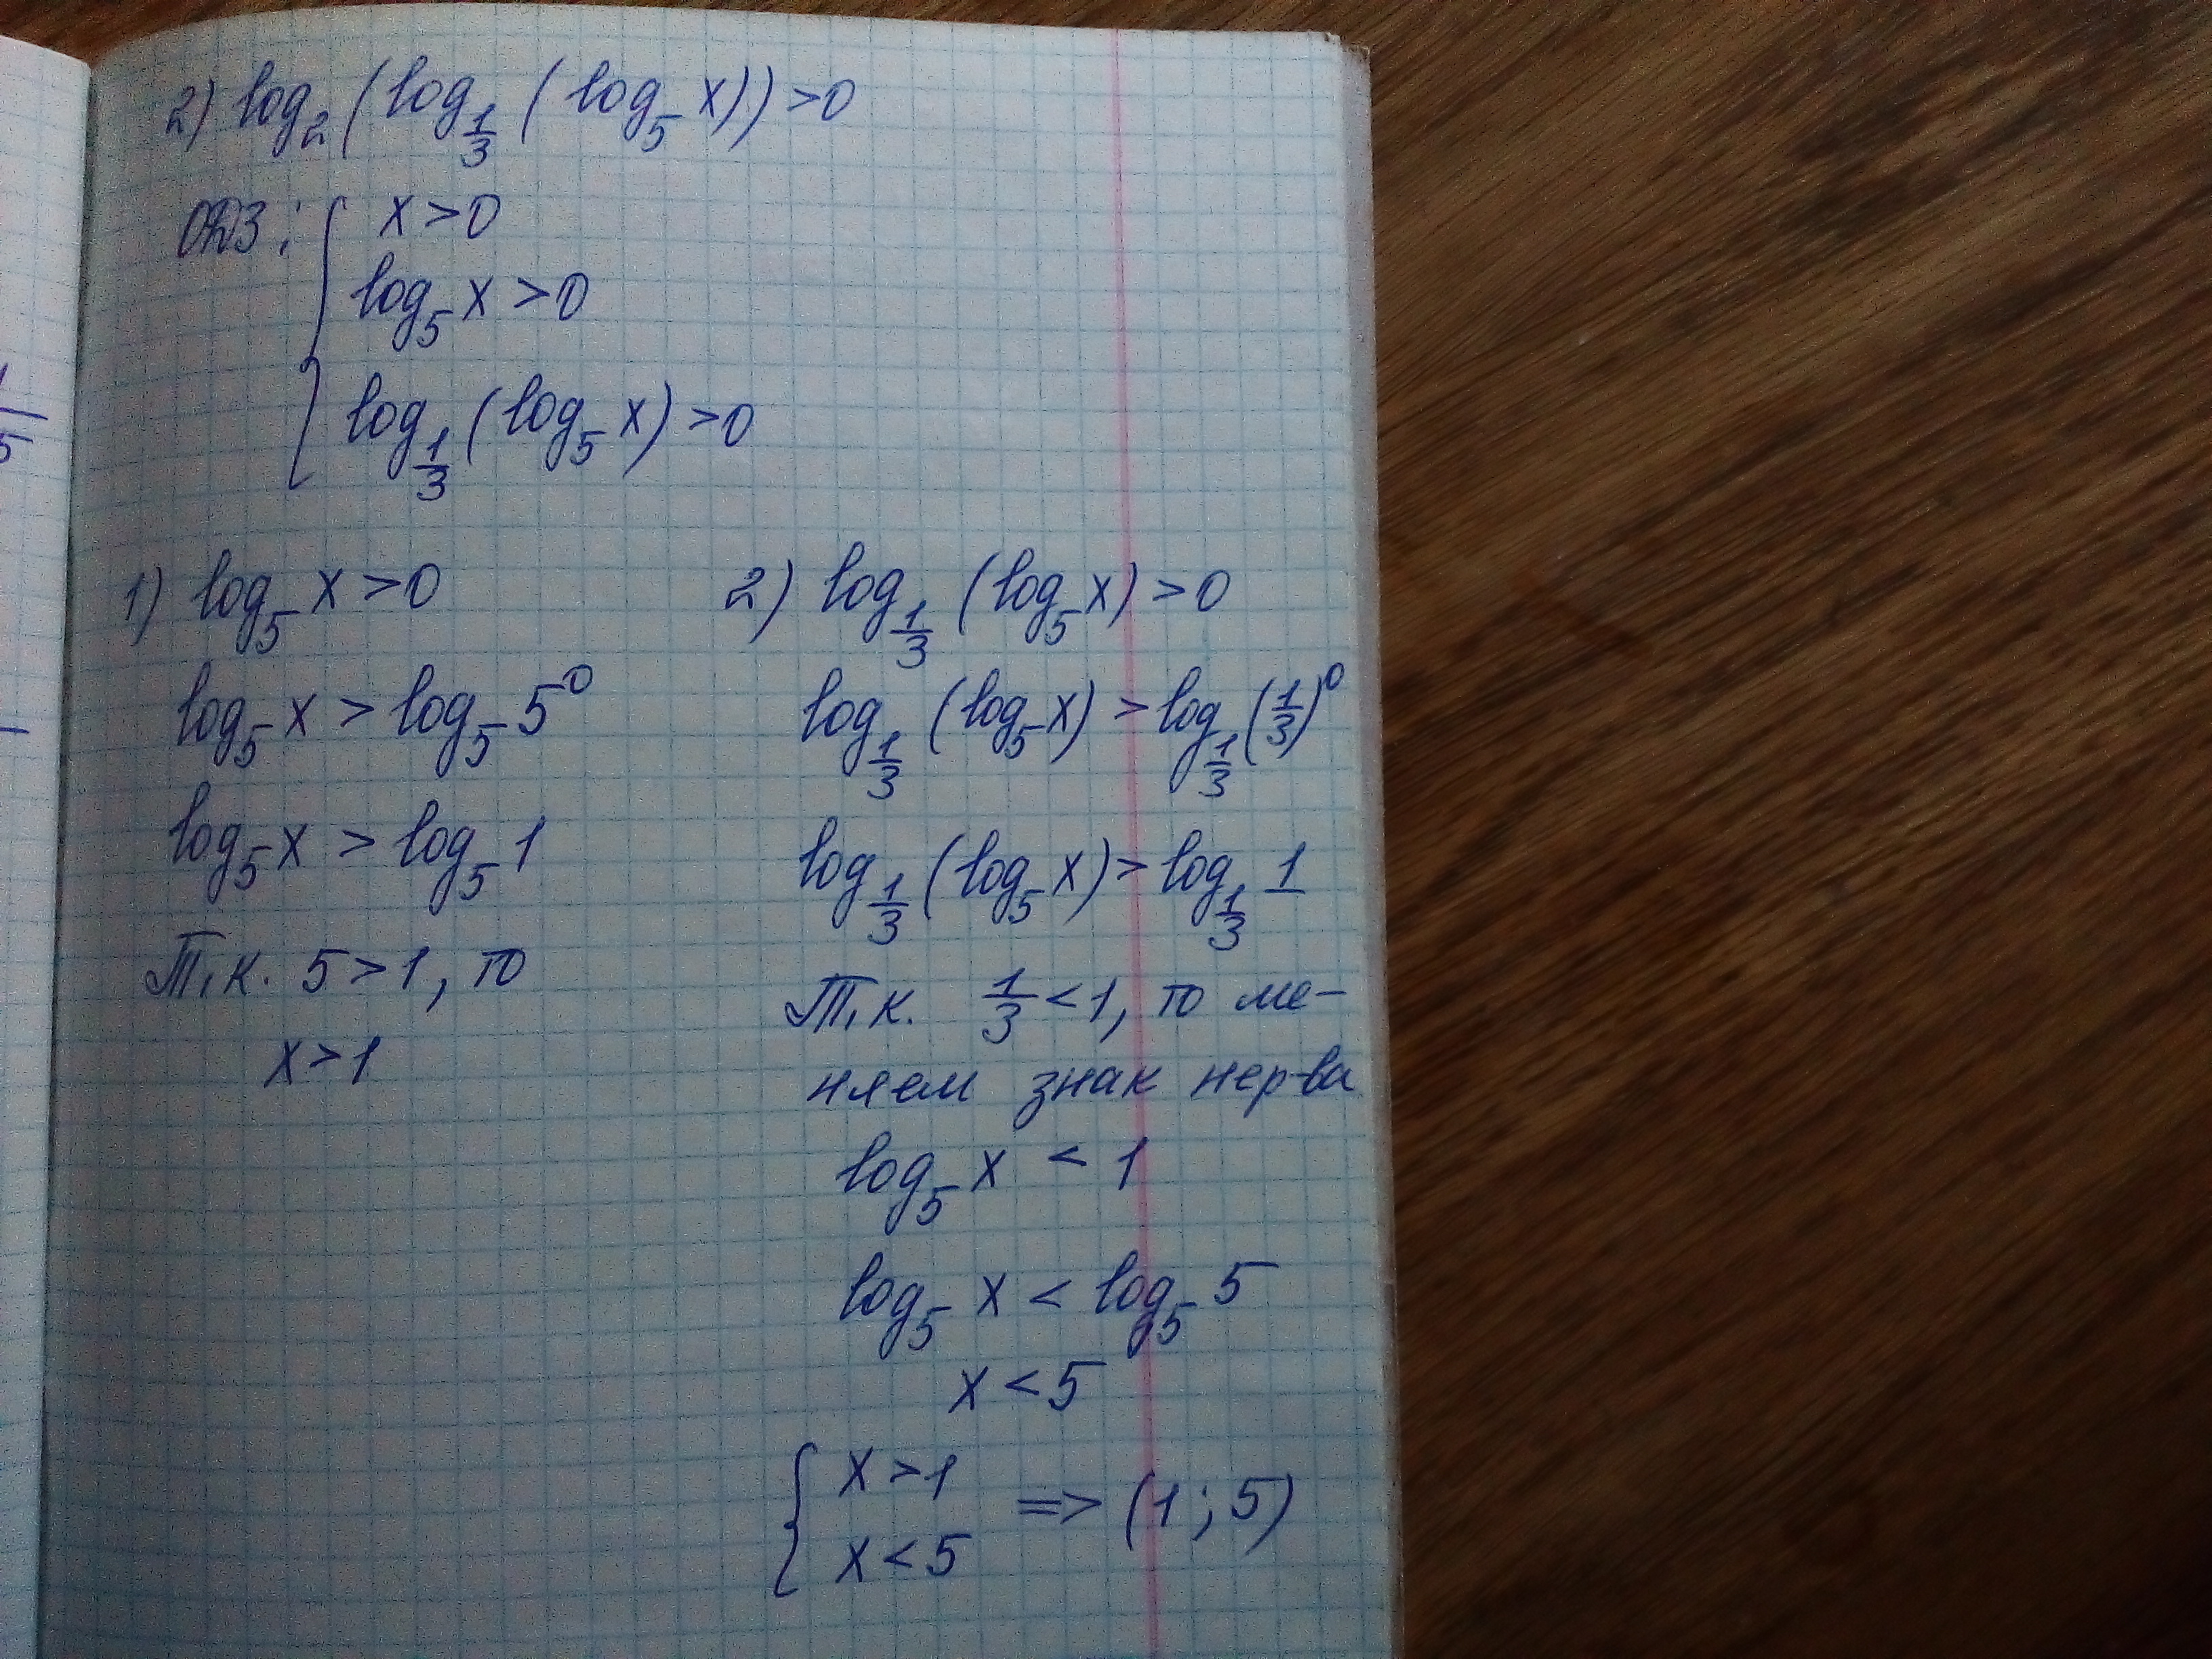 2) log₂(log_{1/3}(log₅ x)) > 0
ОДЗ: { x > 0
log₅ x > 0
log_{1/3}(log₅ x) > 0
1) log₅ x > 0
log₅ x > log₅ 5⁰
log₅ x > log₅ 1
Т.к. 5 > 1, то
x > 1
2) log_{1/3}(log₅ x) > 0
log_{1/3}(log₅ x) > log_{1/3}(1/3)⁰
log_{1/3}(log₅ x) > log_{1/3} 1
Т.к. 1/3 < 1, то ме-
няем знак нер-ва
log₅ x < 1
log₅ x < log₅ 5
x < 5
{ x > 1
x < 5 => (1; 5)